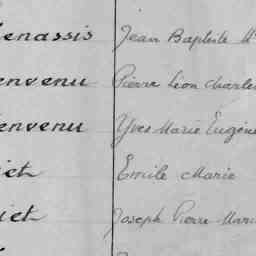 enassis Jean Baptiste M
envenu Pierre Léon Charles
envenu Yves Marie Eugène
iet Emile Marie
iet Joseph Pierre Mari